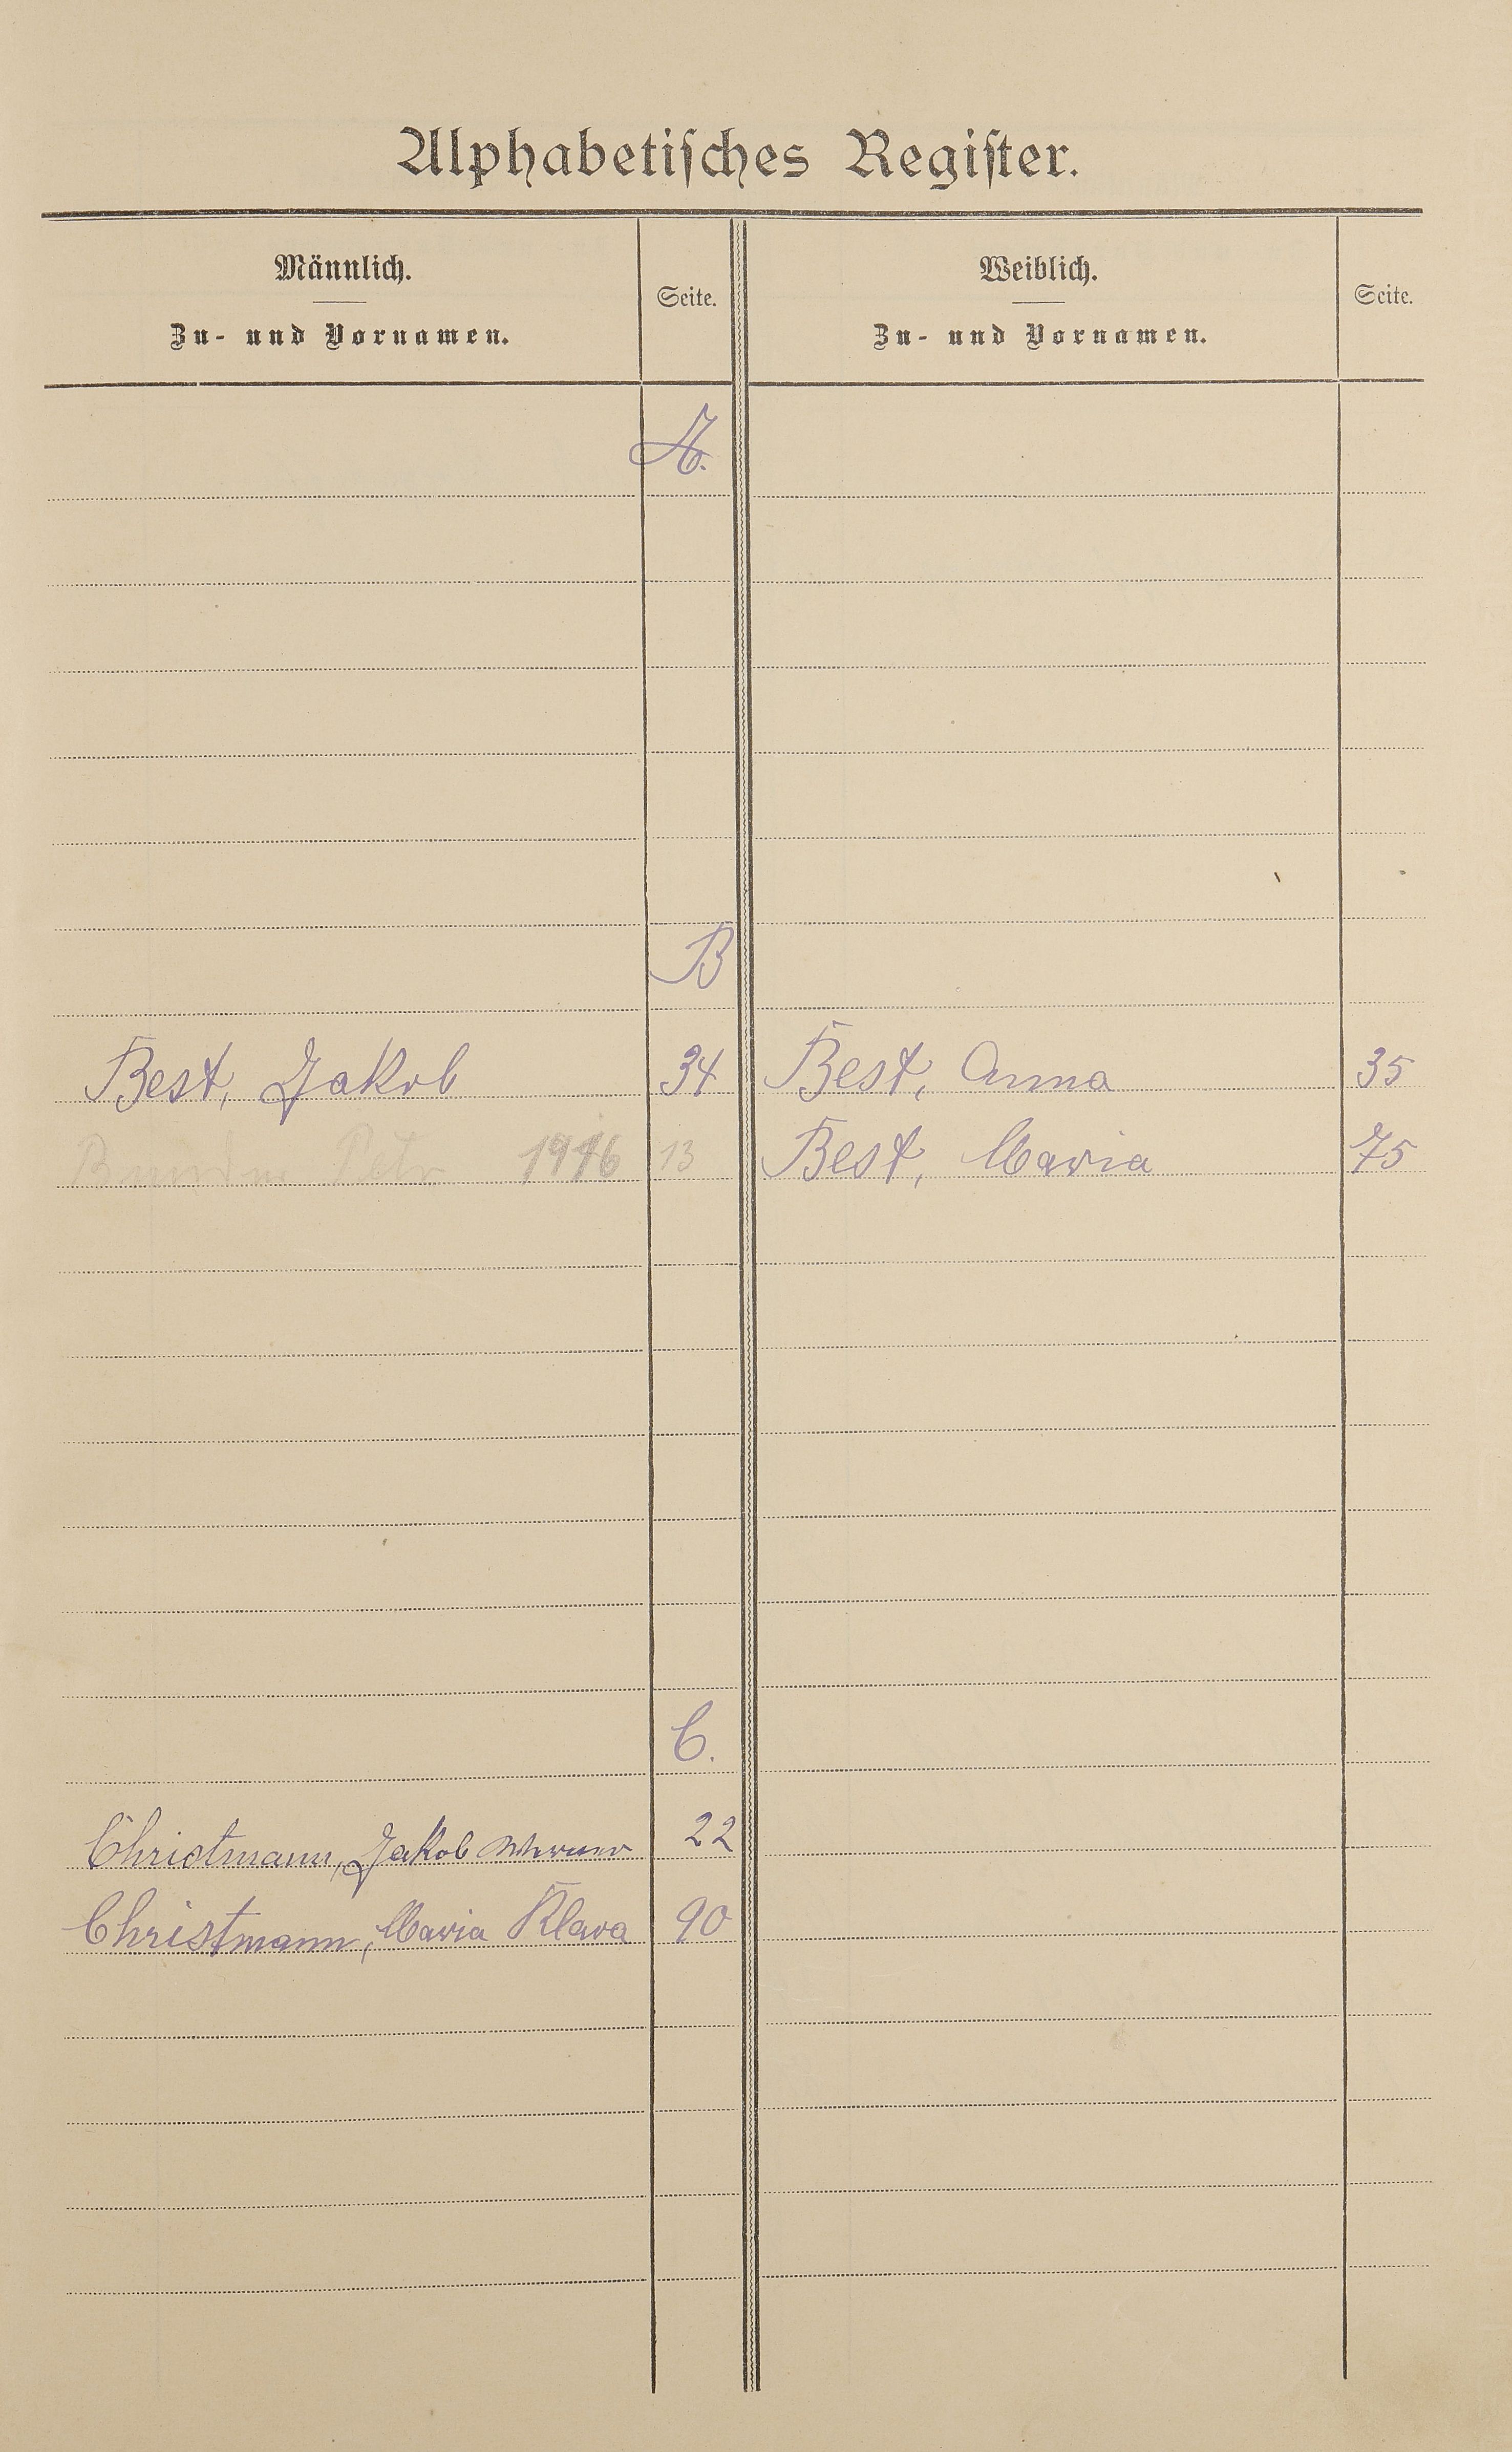 Alphabetisches Register.
Männlich. Weiblich.
Seite. Seite.
Zu- und Vornamen. Zu- und Vornamen.
A.
B
Best, Jakob 34 Best, Anna 35
Peter 1916 13 Best, Maria 75
C.
Christmann, Jakob 22
Christmann, Maria Klara 90